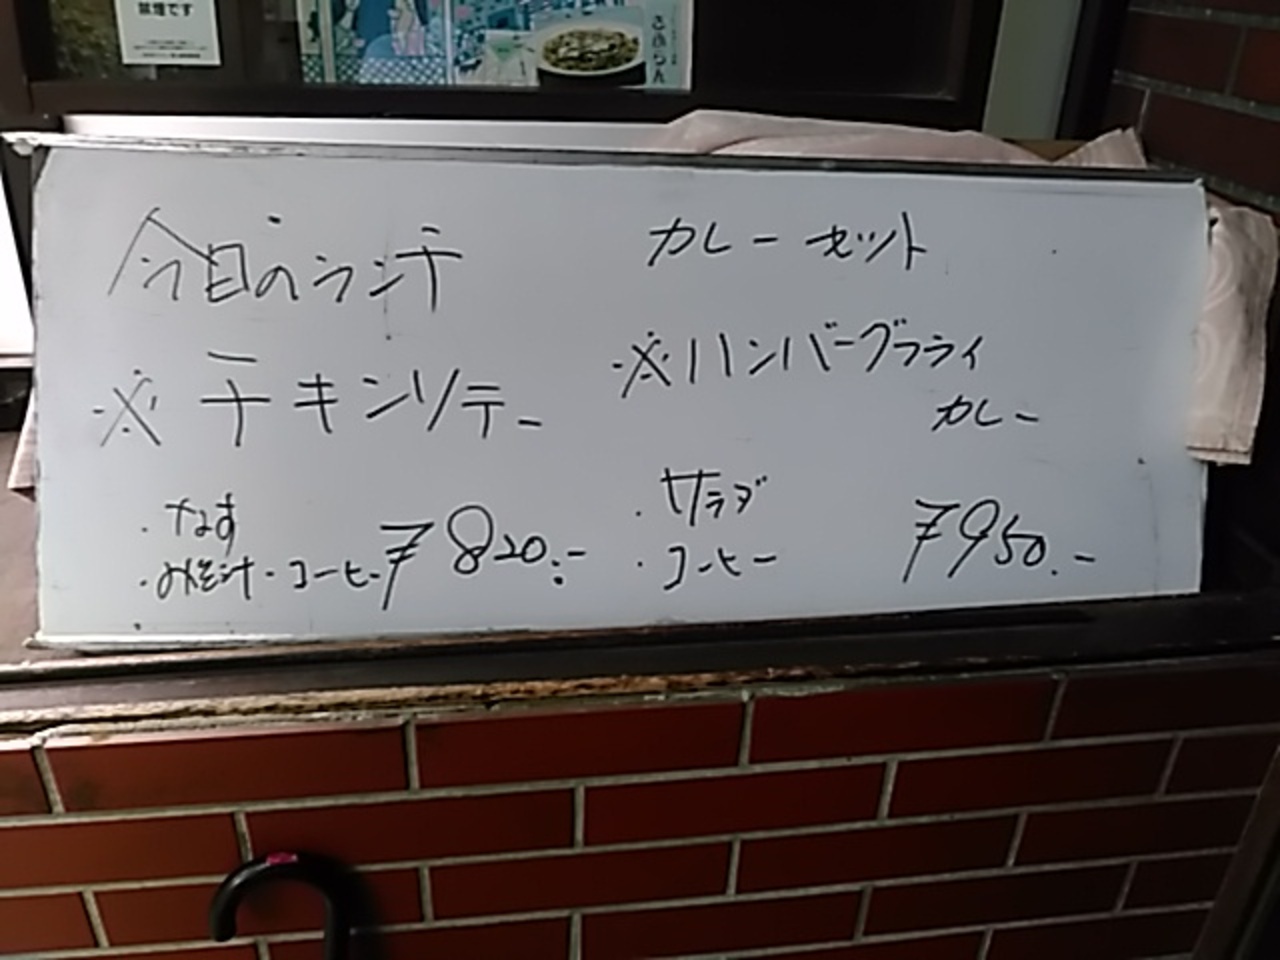 禁煙です
今日のランチ
※チキンソテー
・なす
・みそ汁・コーヒー ¥820.-
カレーセット
※ハンバーグフライ
カレー
・サラダ
・コーヒー
¥950.-